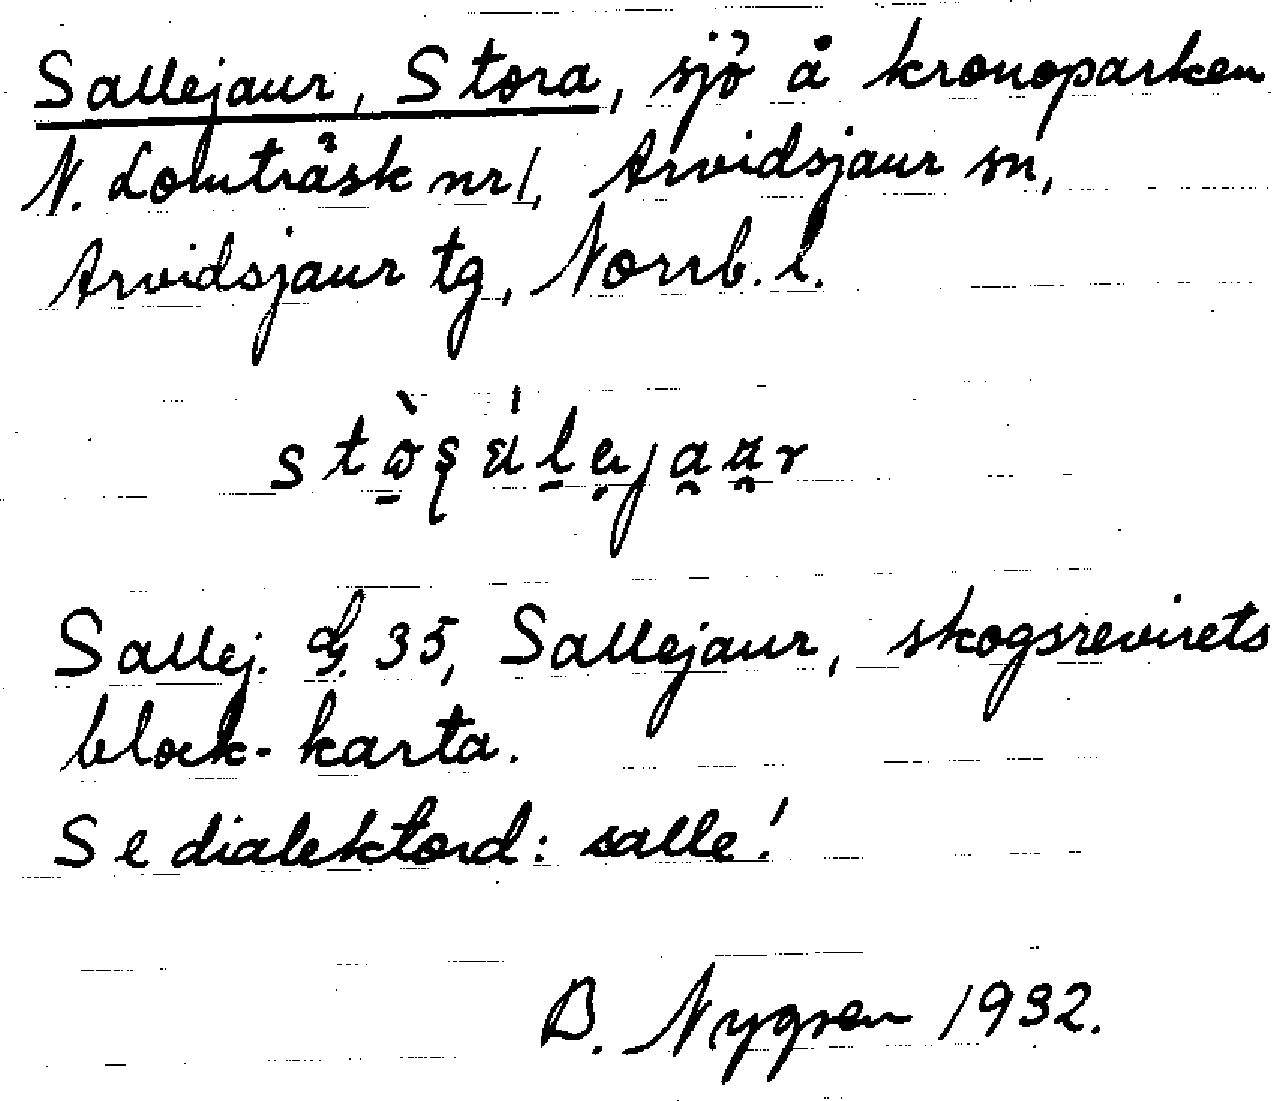 Sallejaur, Stora, sjö å kronoparken
N. Lomträsk nr 1, Arvidsjaur sn,
Arvidsjaur tg, Norrb. l.
Sallej. G. 35, Sallejaur, skogsrevirets
block-karta.
Se dialektord: salle!
B. Nygren 1932.